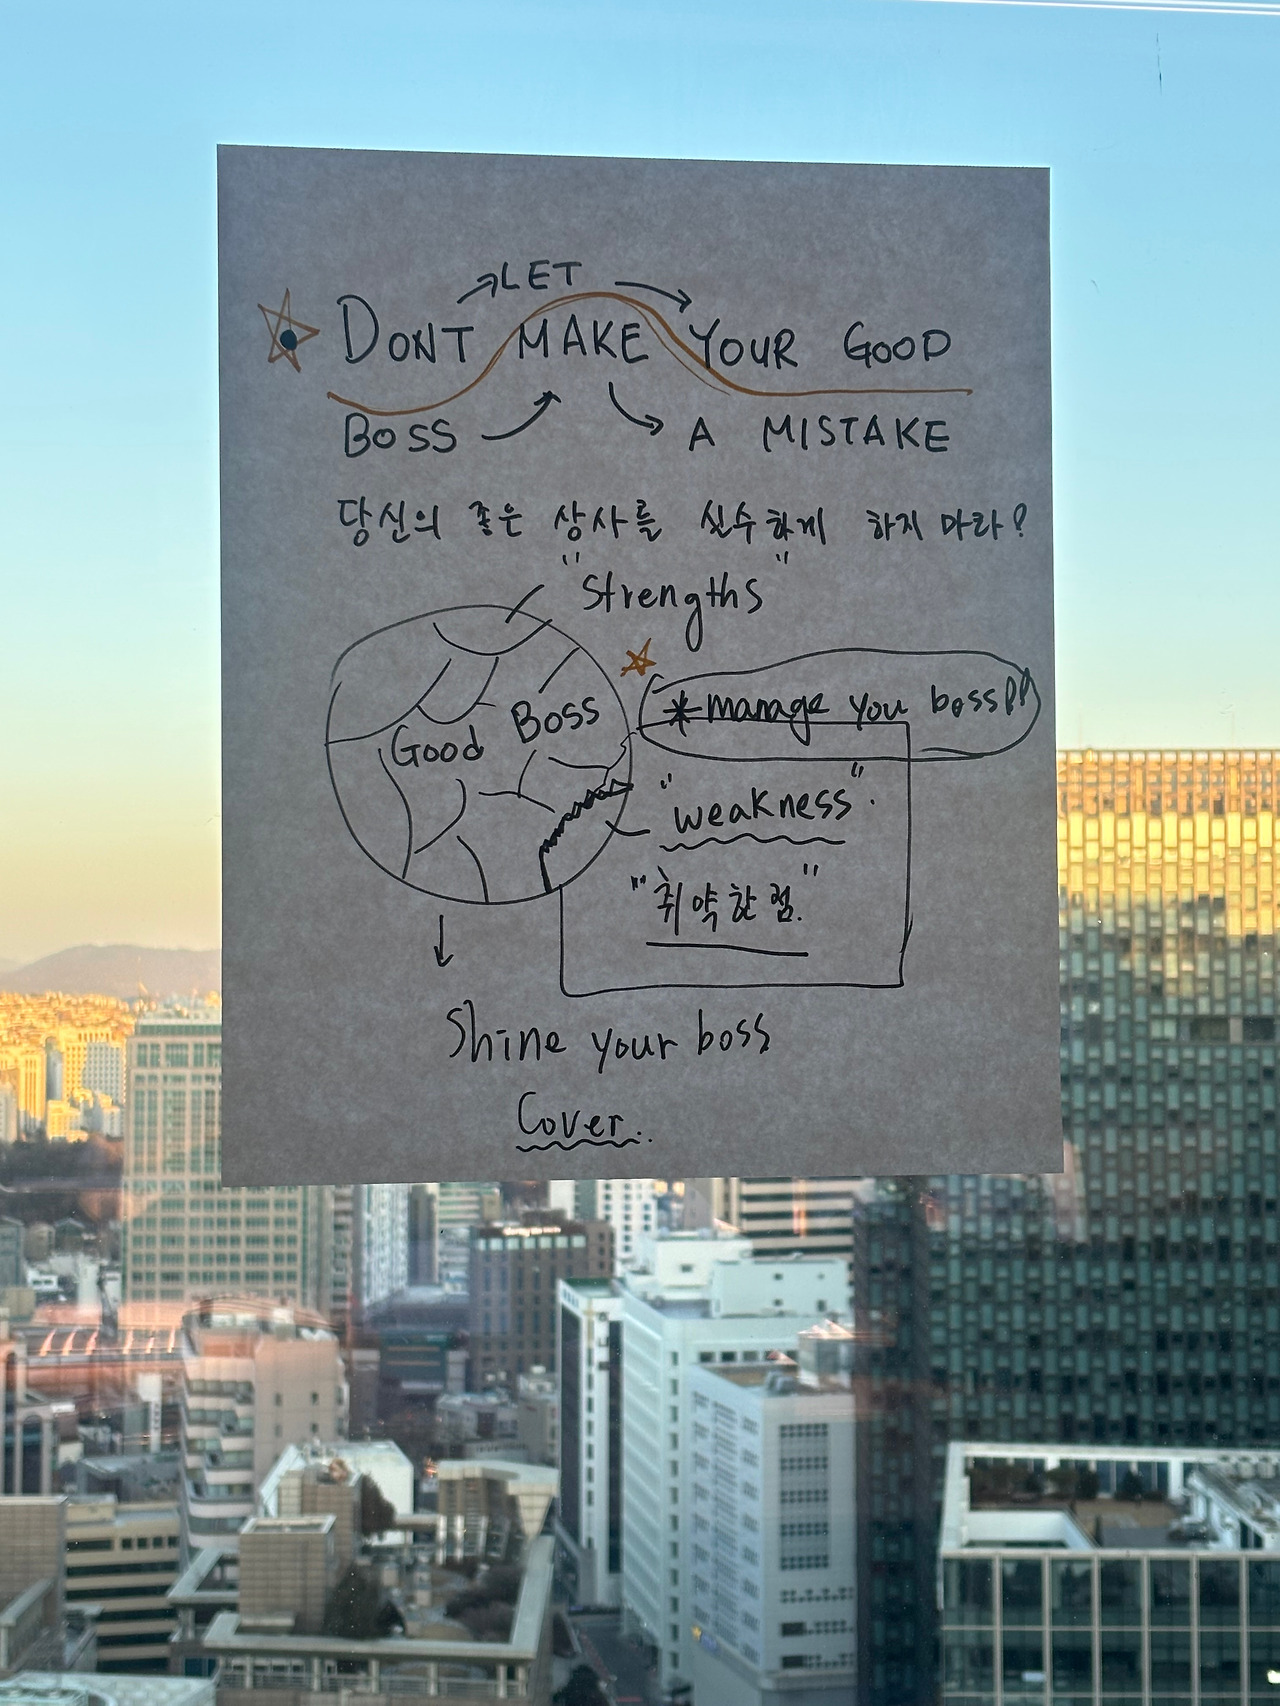 LET
DONT MAKE YOUR GOOD
BOSS A MISTAKE
당신의 좋은 상사를 실수하게 하지 마라?
"Strengths"
Good Boss
*manage you boss!!
"weakness".
"취약한 점."
Shine your boss
Cover..